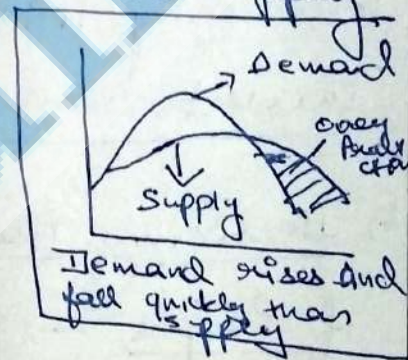 Demand
over
Supply
Demand rises and
fall quickly than
supply